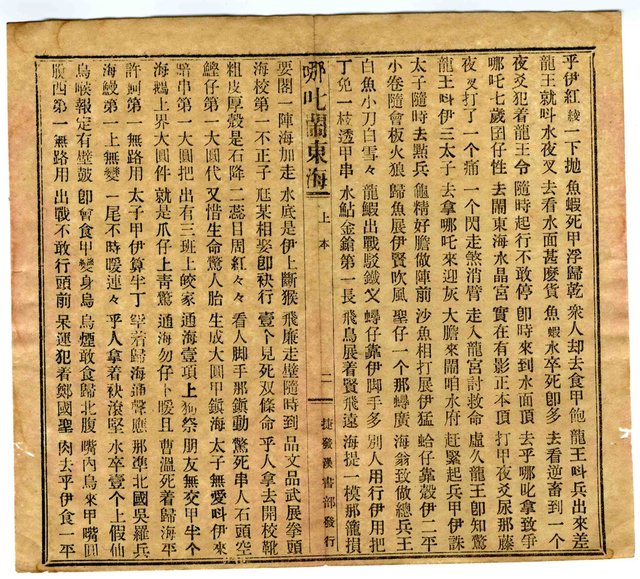 乎伊紅綾一下拋 魚蝦死甲浮歸乾 衆人却去食甲飽 龍王呌兵出來差
龍王就呌水夜叉 去看水面甚麽貨 魚蝦水卒死卽多 去看逆畜到一个
夜爻犯着龍王令 隨時起行不敢停 卽時來到水面頂 去乎哪叱拿致爭
哪吒七歲囝仔性 去鬧東海水晶宮 實在有影正本頂 打甲夜爻尿那藤
夜爻打了一个痛 一个閃走煞消臂 走入龍宮討救命 虛久龍王卽知驚
龍王呌伊三太子 去拿哪吒來迎灰 大膽來鬧咱水府 赶緊起兵甲伊誅
太子隨時去點兵 龜精好膽做陣前 沙魚相打展伊猛 蛤仔靠殼伊二平
小卷隨會板火狼 歸魚展伊賢吹風 聖仔一个那蟳廣 海翁致做總兵王
白魚小刀白雪々 龍蝦出戰駛鐵叉 蟳仔靠伊脚手多 別人用行伊用把
丁免一枝透甲串 水鮎金鎗第一長 飛鳥展着賢飛遠 海提一模那籠損
哪叱鬧東海 上本 二 捷發漢書部發行
要閣一陣海加走 水底是伊上斷猴 飛廉走壁隨時到 品文品武展拳頭
海校第一不正子 尪某相娶卽袂行 壹个見死双條命 乎人拿去開校靴
粗皮厚殼是石降 二蕊目周紅々々 看人脚手那鎮動 驚死串人石頭空
鰹仔第一大圓代 又惜生命驚人胎 生成大圓甲鎮海 太子無愛呌伊來
賠串第一大圓把 出有三班上皎家 通海壹項上狗祭 朋友無交甲半个
海鵝上界大圓件 就是爪仔上靑驚 通海勿仔卜暖丑 曹溫死着歸海平
許鈳第一無路用 太子甲伊算牛丁 罕着歸海通聲應 那準北國吳羅兵
海鰻第一上無變 一尾不時暖連々 乎人拿着袂滾堅 水卒壹个上假仙
烏喉報定有壁鼓 卽會食甲變身烏 烏煙敢食歸北腹 嘴內烏來甲嘴圓
腹西第一無路用 出戰不敢行頭前 呆運犯着鄭國聖 肉去乎伊食一平